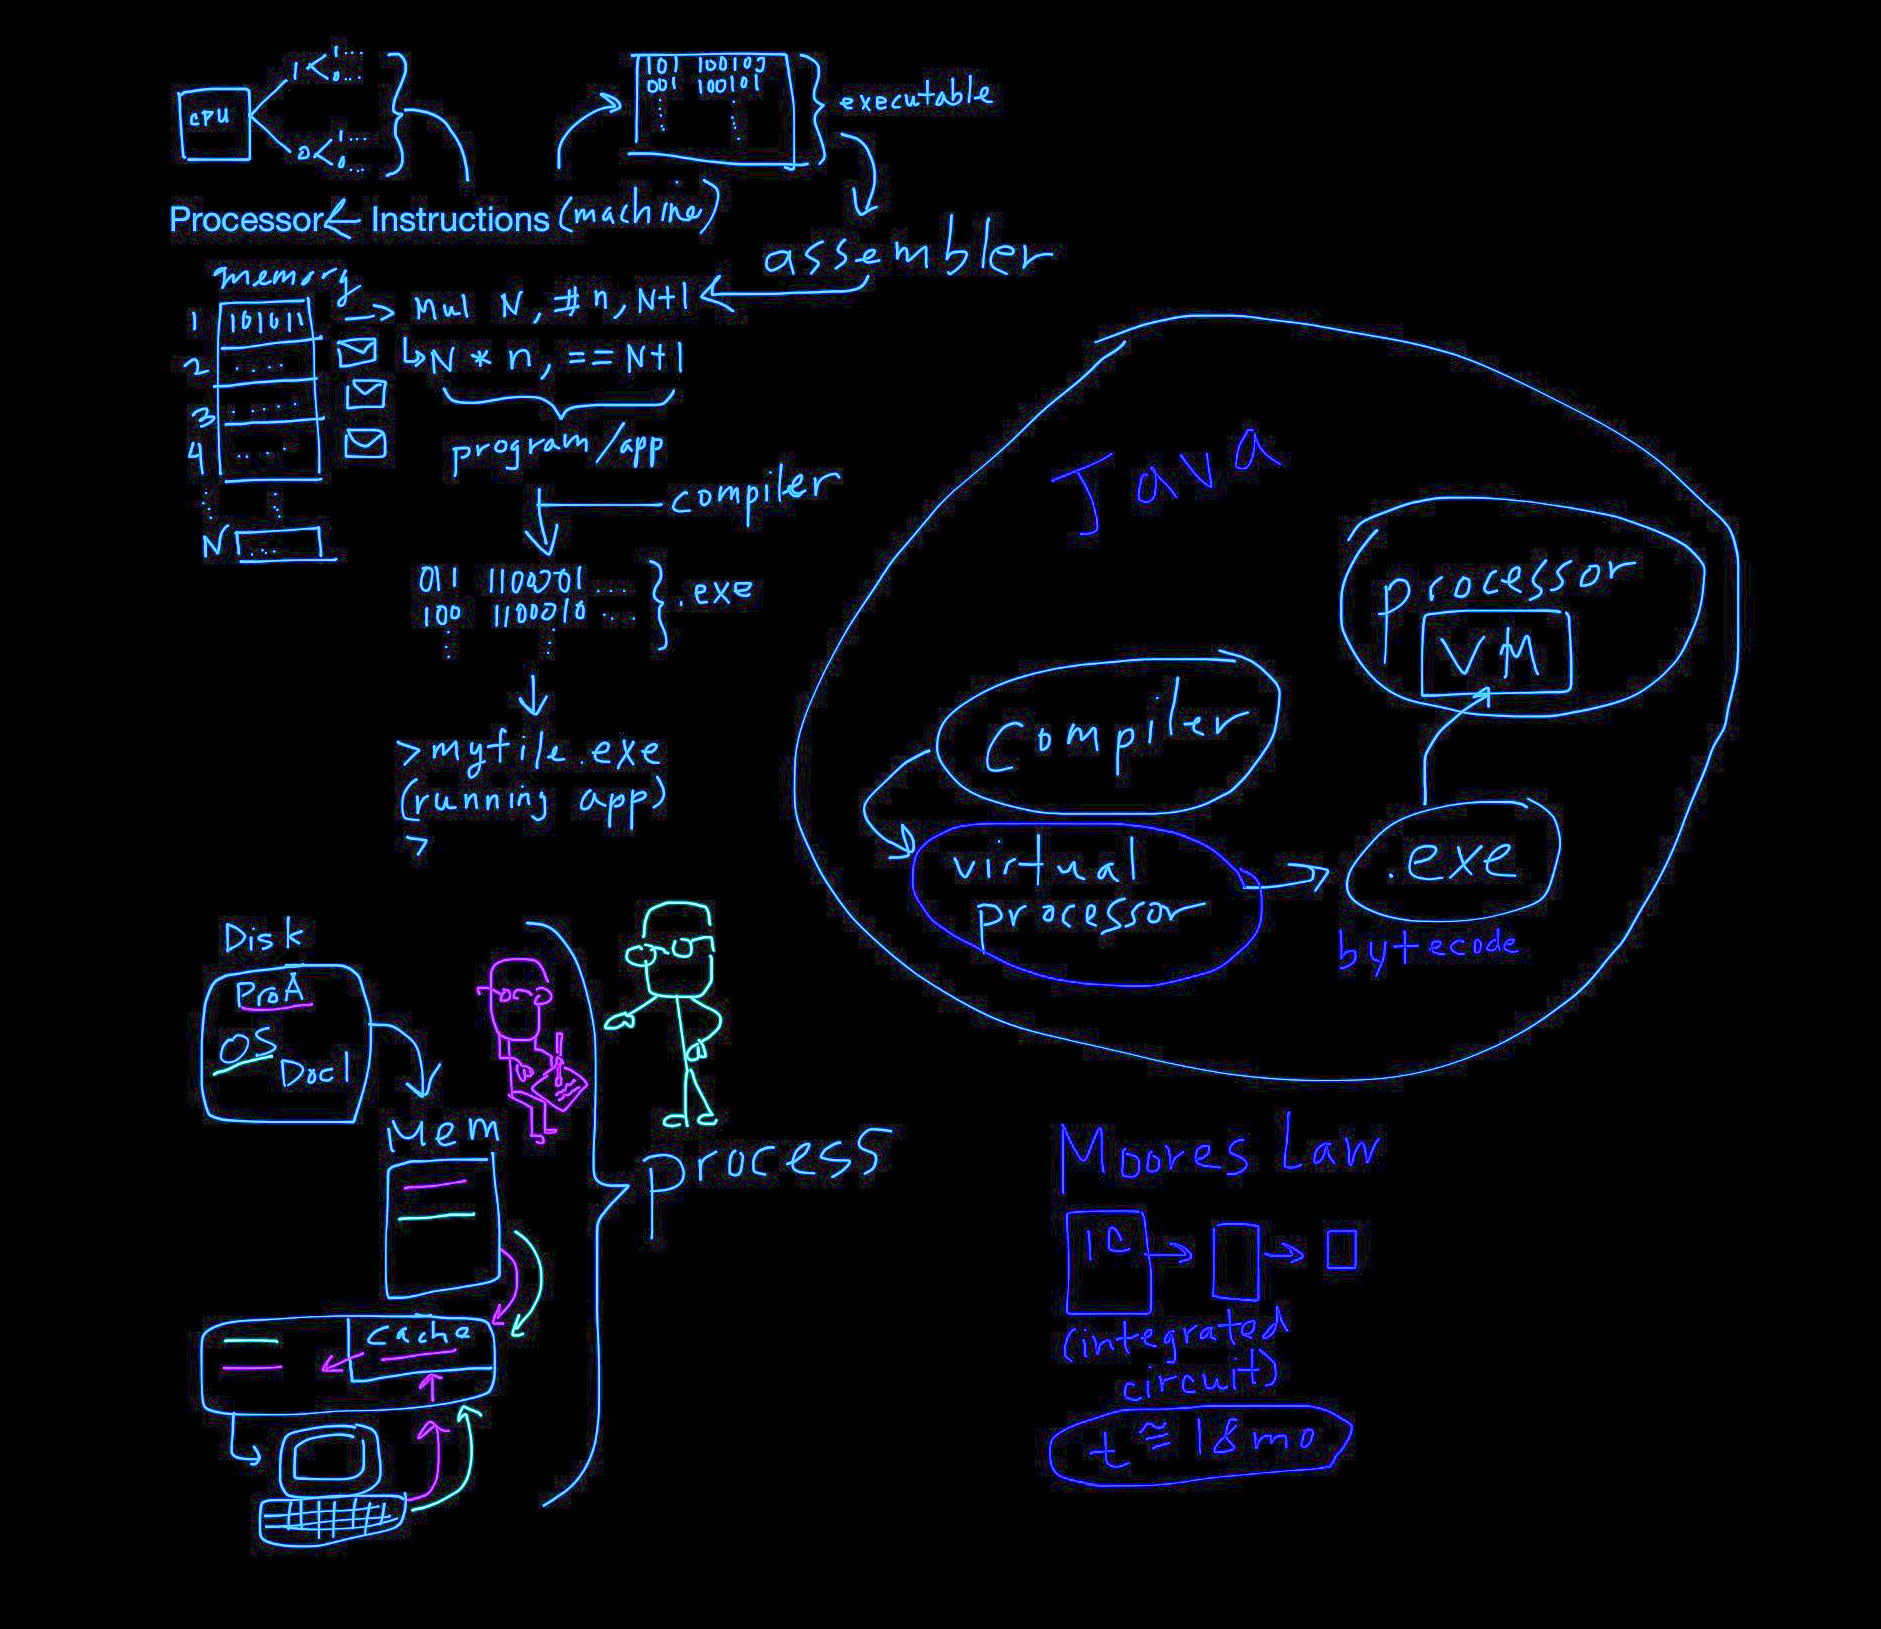 1 1...
0...
CPU
0 1...
0...
101 100101
001 100101
executable
Processor ← Instructions (machine)
assembler
memory
1 101011 → Mul N, #n, N+1
2 .... ↳ N * n, == N+1
3 .....
4 ....
N ...
program/app
compiler
011 1100001 ...
100 1100010 ...
.exe
>myfile.exe
(running app)
>
Java
processor
VM
Compiler
virtual
processor
.exe
bytecode
Disk
ProA
OS
Doc1
Mem
process
Cache
Moores Law
IC
(integrated
circuit)
t ≅ 18 mo